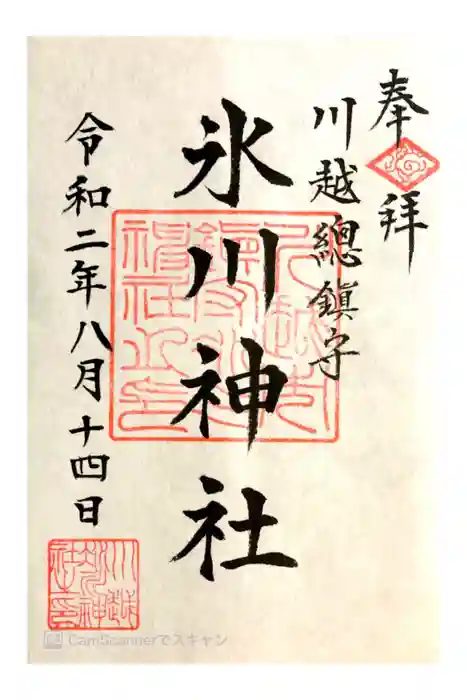 奉拝
川越總鎮守
氷川神社
令和二年八月十四日
CamScannerでスキャン